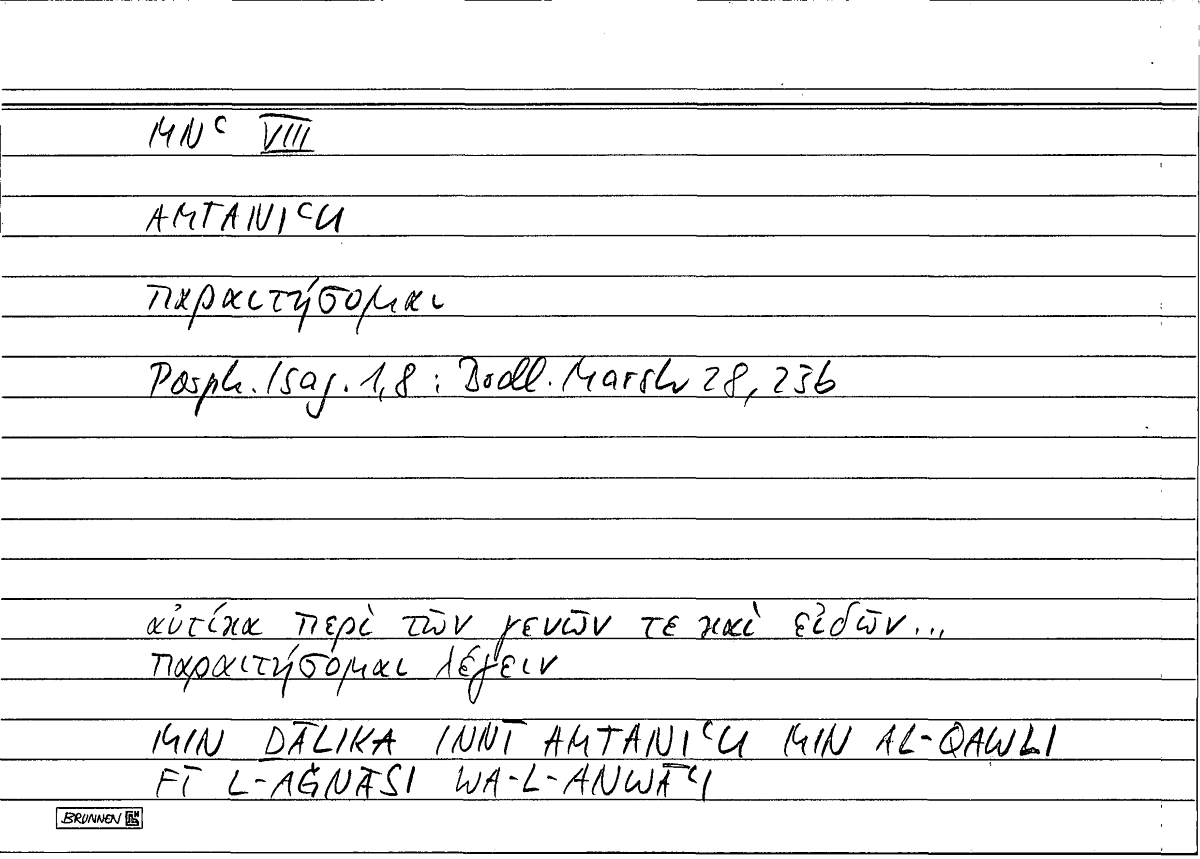 MNʿ VIII
AMTANIʿU
παραιτήσομαι
Porph. Isag. 1,8 : Bodl. Marsh 28, 23b
αὐτίκα περὶ τῶν γενῶν τε καὶ εἰδῶν...
παραιτήσομαι λέγειν
MIN ḎĀLIKA INNĪ AMTANIʿU MIN AL-QAWLI
FĪ L-AǦNĀSI WA-L-ANWĀʿI
BRUNNEN